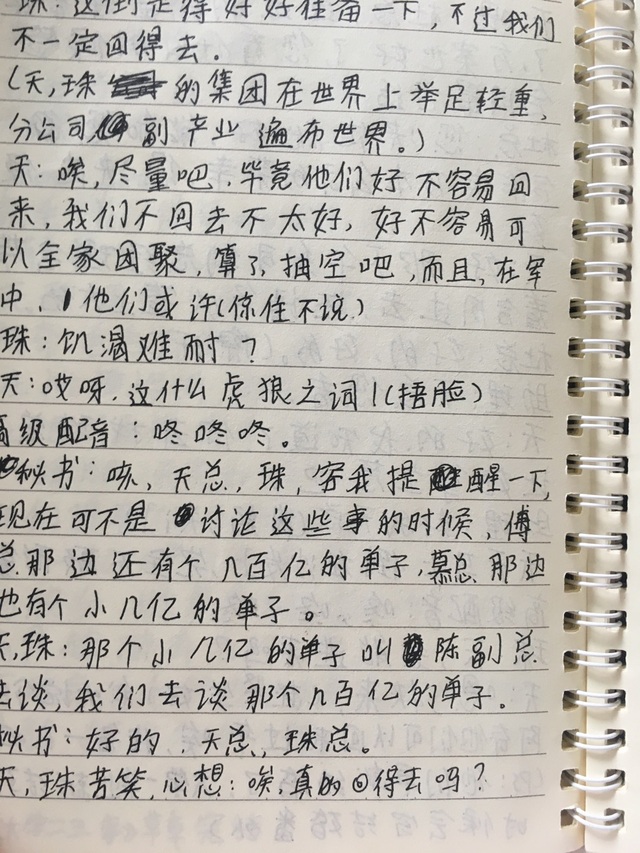 珠：这倒是得好好准备一下，不过我们
不一定回得去。
(天，珠的集团在世界上举足轻重，
分公司，副产业遍布世界。)
天：唉，尽量吧，毕竟他们好不容易回
来，我们不回去不太好，好不容易可
以全家团聚，算了，抽空吧，而且，在军
中，他们或许(惊住不说)
珠：饥渴难耐？
天：哎呀，这什么虎狼之词！(捂脸)
高级配音：咚咚咚。
秘书：咳，天总，珠，容我提醒一下，
现在可不是讨论这些事的时候，傅
总那边还有个几百亿的单子，慕总那边
也有个小几亿的单子。
天，珠：那个小几亿的单子叫陈副总
去谈，我们去谈那个几百亿的单子。
秘书：好的，天总，珠总。
天，珠苦笑，心想：唉，真的回得去吗？